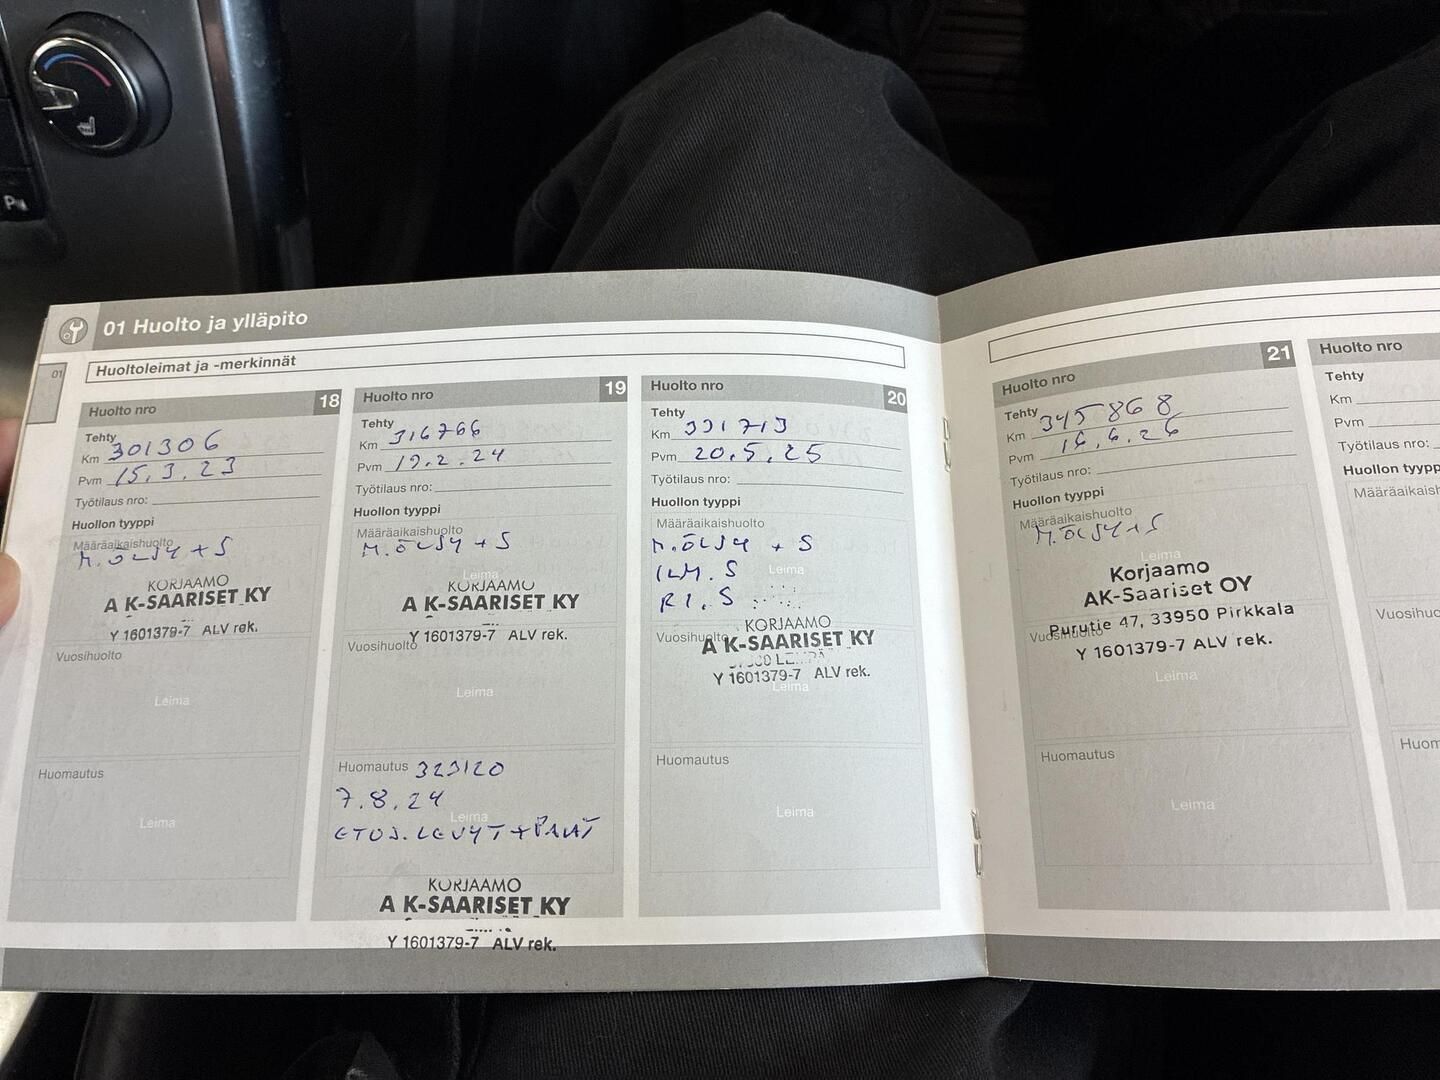 01 Huolto ja ylläpito
01
Huoltoleimat ja -merkinnät
Huolto nro 18
Tehty
Km 301306
Pvm 15.3.23
Työtilaus nro:
Huollon tyyppi
Määräaikaishuolto
M.ÖLJY + S
KORJAAMO
A K-SAARISET KY
Y 1601379-7 ALV rek.
Vuosihuolto
Leima
Huomautus
Leima
Huolto nro 19
Tehty
Km 316766
Pvm 19.2.24
Työtilaus nro:
Huollon tyyppi
Määräaikaishuolto
M.ÖLJY + S
Leima
KORJAAMO
A K-SAARISET KY
Y 1601379-7 ALV rek.
Vuosihuolto
Leima
Huomautus 323120
7.8.24
Leima
ETUJ. LEVYT + PALAT
KORJAAMO
A K-SAARISET KY
Y 1601379-7 ALV rek.
Huolto nro 20
Tehty
Km 331713
Pvm 20.5.25
Työtilaus nro:
Huollon tyyppi
Määräaikaishuolto
M.ÖLJY + S
ILM. S
Leima
RI. S
KORJAAMO
Vuosihuolto
A K-SAARISET KY
Y 1601379-7 ALV rek.
Leima
Huomautus
Leima
Huolto nro 21
Tehty
Km 345868
Pvm 16.6.26
Työtilaus nro:
Huollon tyyppi
Määräaikaishuolto
M.ÖLJY + S
Leima
Korjaamo
AK-Saariset OY
Purutie 47, 33950 Pirkkala
Vuosihuolto
Y 1601379-7 ALV rek.
Leima
Huomautus
Leima
Huolto nro
Tehty
Km
Pvm
Työtilaus nro:
Huollon tyypp
Määräaikaish
Vuosihuo
Huom
P